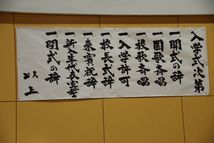 入学式次第
一 開式の辞
一 国歌斉唱
一 校歌斉唱
入学許可
一 校長式辞
一 来賓祝辞
一 新入生代表宣誓
一 閉式の辞
以上